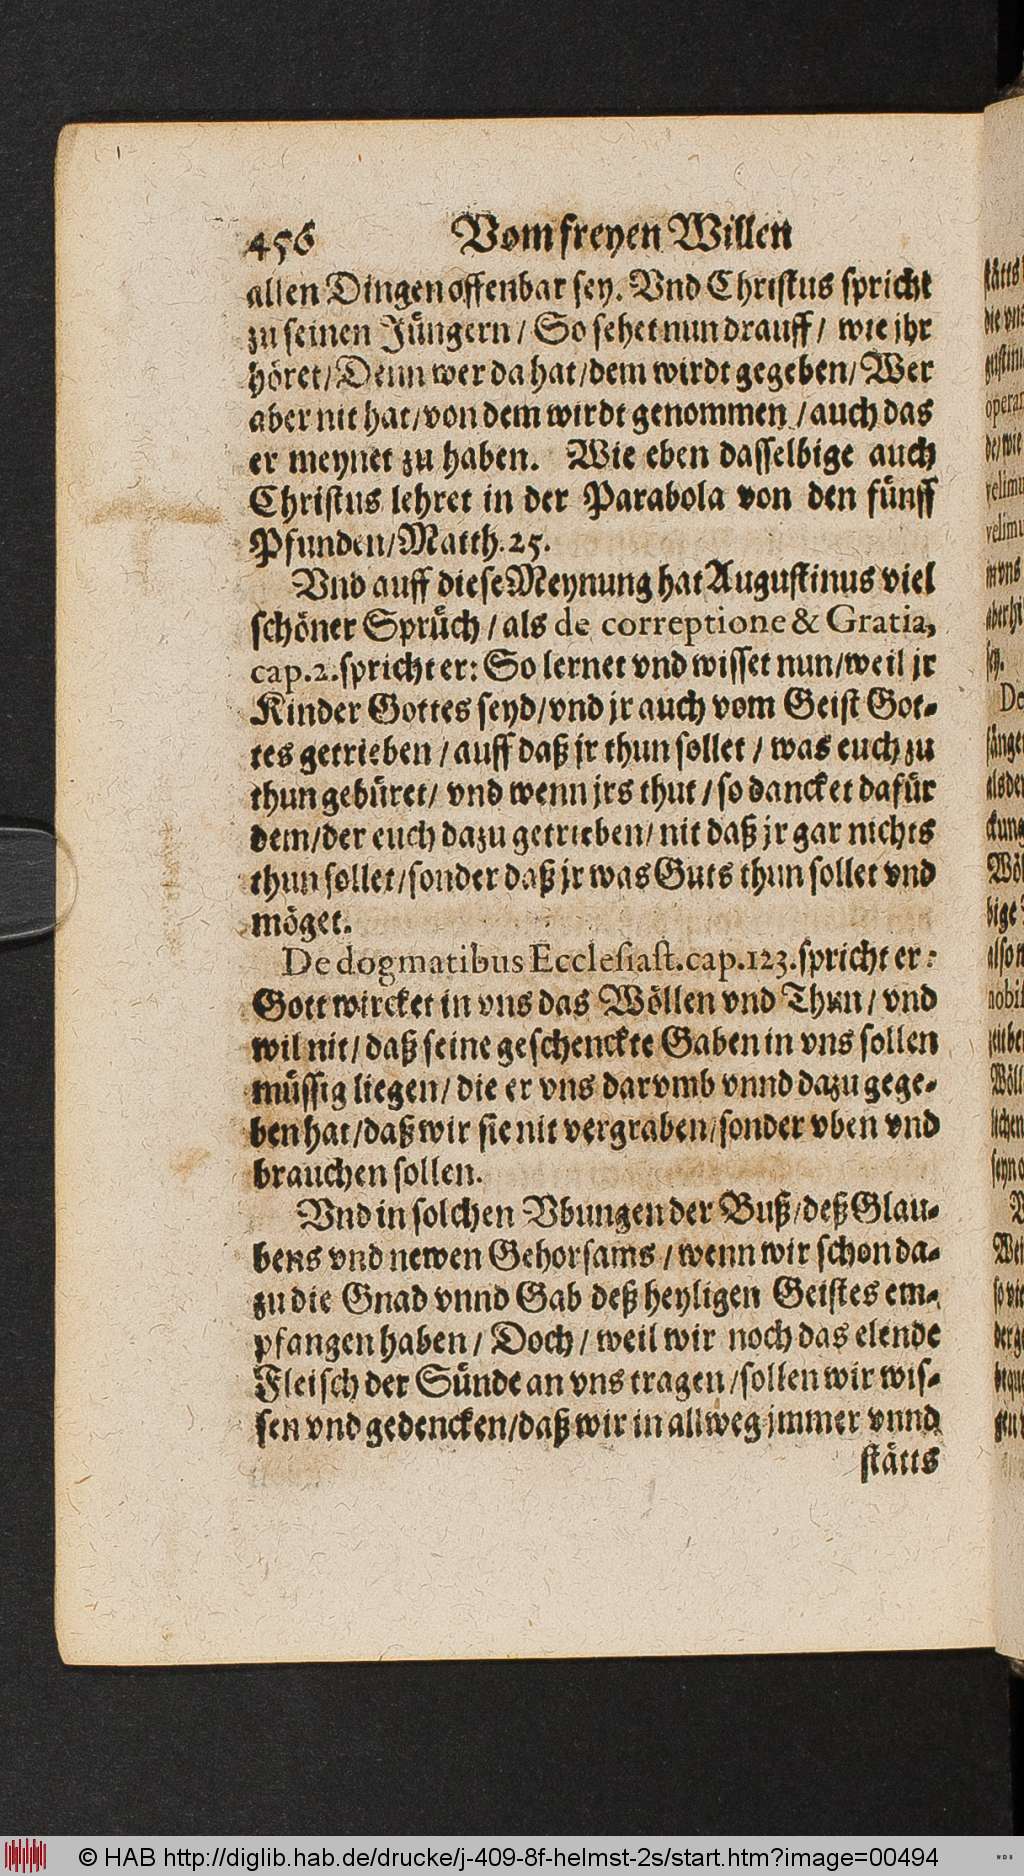 456 Vom freyen Willen
allen Dingen offenbar sey. Vnd Christus spricht
zu seinen Jüngern / So sehet nun drauff / wie jhr
höret / Denn wer da hat / dem wirdt gegeben / Wer
aber nit hat / von dem wirdt genommen / auch das
er meynet zu haben. Wie eben dasselbige auch
Christus lehret in der Parabola von den fünff
Pfunden / Matth. 25.
Vnd auff diese Meynung hat Augustinus viel
schöner Sprüch / als de correptione & Gratia,
cap. 2. spricht er: So lernet vnd wisset nun / weil jr
Kinder Gottes seyd / vnd jr auch vom Geist Got-
tes getrieben / auff daß jr thun sollet / was euch zu
thun gebüret / vnd wenn jrs thut / so dancket dafür
dem / der euch dazu getrieben / nit daß jr gar nichts
thun sollet / sonder daß jr was Guts thun sollet vnd
möget.
De dogmatibus Ecclesiast. cap. 123. spricht er:
Gott wircket in vns das Wöllen vnd Thun / vnd
wil nit / daß seine geschenckte Gaben in vns sollen
müssig liegen / die er vns darvmb vnnd dazu gege-
ben hat / daß wir sie nit vergraben / sonder vben vnd
brauchen sollen.
Vnd in solchen Vbungen der Buß / deß Glau-
bens vnd newen Gehorsams / wenn wir schon da-
zu die Gnad vnnd Gab deß heyligen Geistes em-
pfangen haben / Doch / weil wir noch das elende
Fleisch der Sünde an vns tragen / sollen wir wis-
sen vnd gedencken / daß wir in allweg jmmer vnnd
stätts
© HAB http://diglib.hab.de/drucke/j-409-8f-helmst-2s/start.htm?image=00494